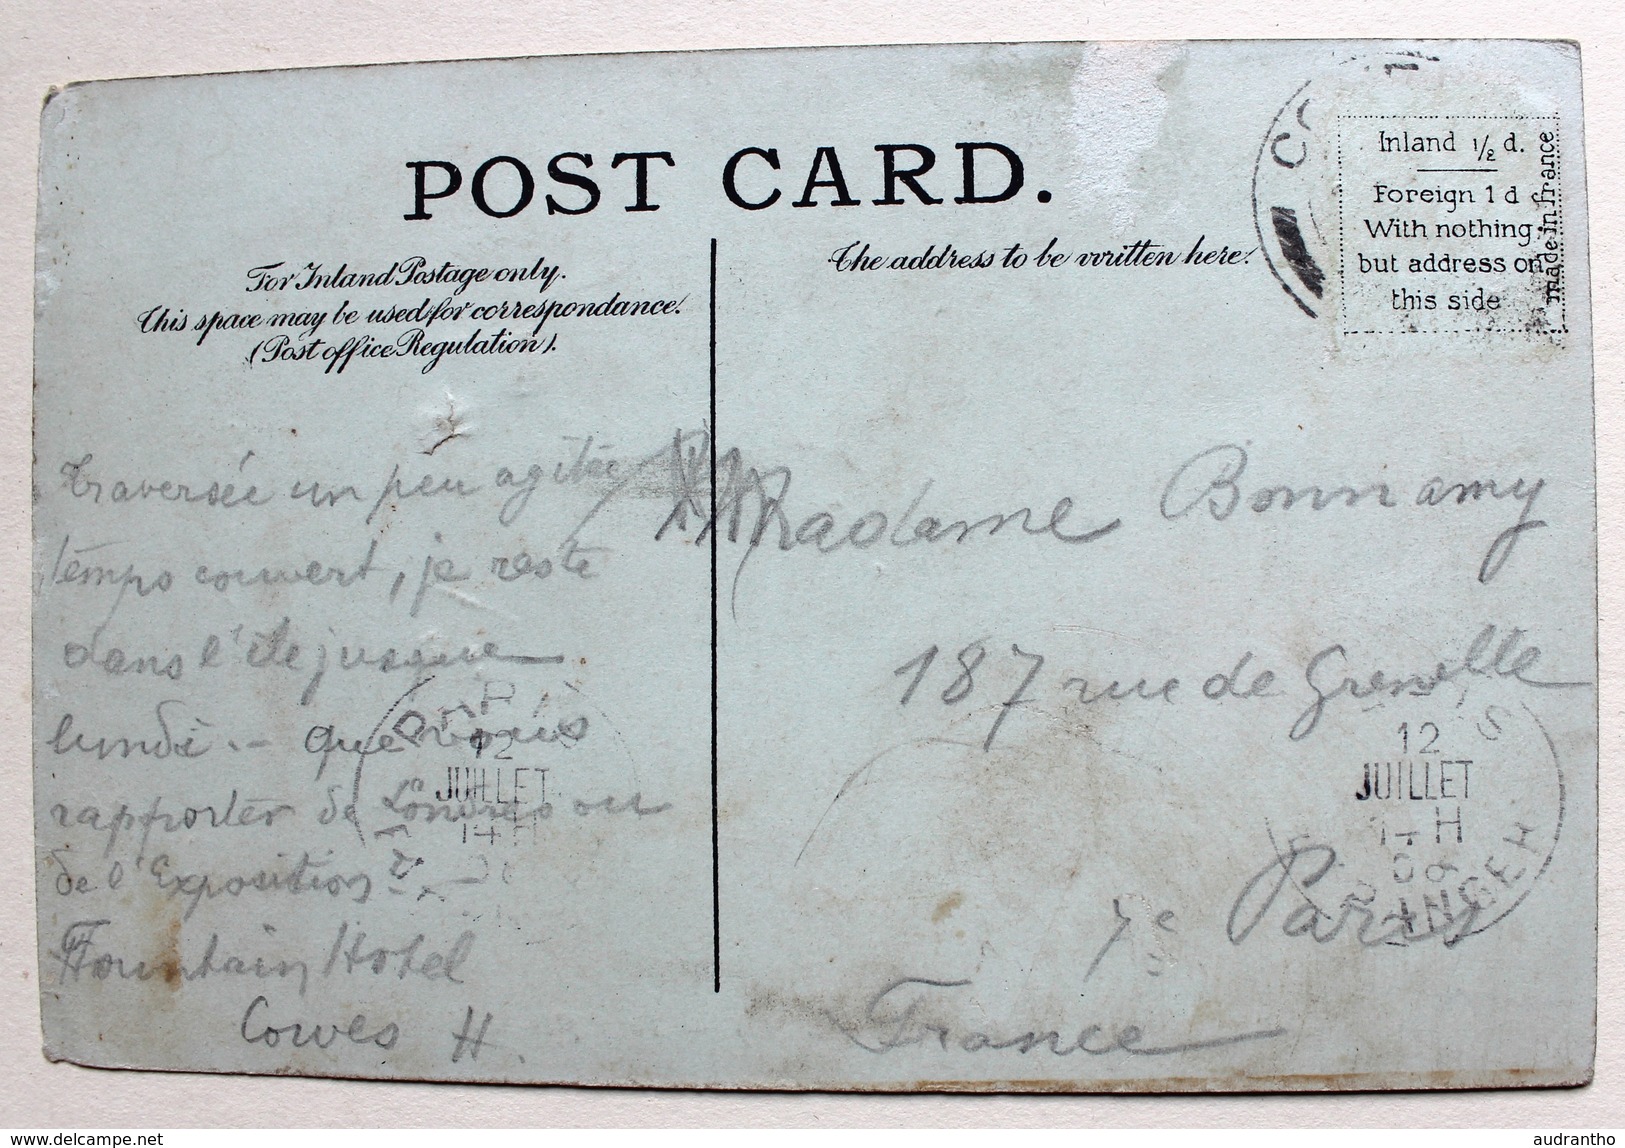 POST CARD.
For Inland Postage only.
This space may be used for correspondance.
(Post office Regulation).
The address to be written here.
Inland ½ d.
Foreign 1 d
With nothing
but address on
this side
made in France
Traversée un peu agitée
temps couvert, je reste
dans l'île jusque
lundi. - Que vous
rapporter de Londres ou
de l'Exposition
Fountain Hotel
Cowes H.
Madame Bonnamy
187 rue de Grenelle
7e Paris
France
PARIS
12
JUILLET
14 H
12
JUILLET
14 H
08
ETRANGER
delcampe.net
audrantho